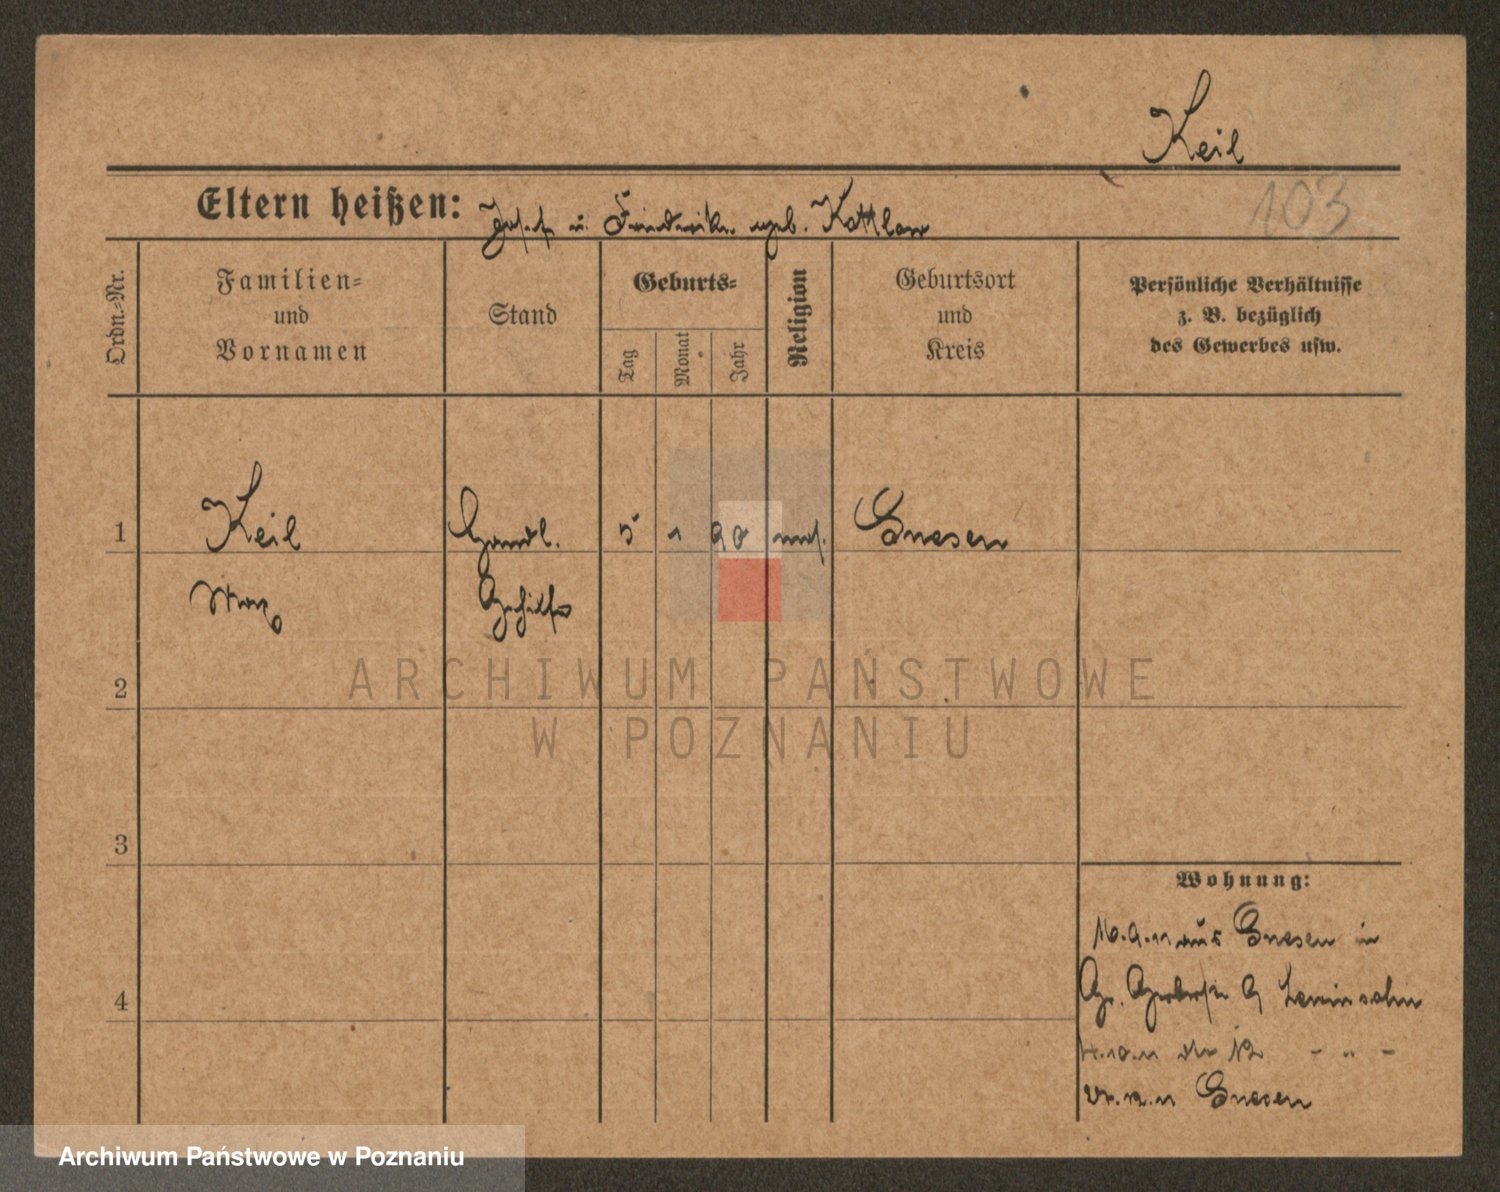 Keil
103
Eltern heißen: Josef u. Friederike geb. Kottlow
Ordn.-Nr.
Familien-
und
Vornamen
Stand
Geburts-
Tag
Monat
Jahr
Religion
Geburtsort
und
Kreis
Persönliche Verhältnisse
z. B. bezüglich
des Gewerbes usw.
1 Keil Handl. 5 1 90 mos. Gnesen
Max Gehilfe
2
ARCHIWUM PAŃSTWOWE
W POZNANIU
3
Wohnung:
16.9.11 aus Gnesen in
Gr. Gerberstr 9 Lewinsohn
4
4.10.11 12 - " -
11 Gnesen
Archiwum Państwowe w Poznaniu